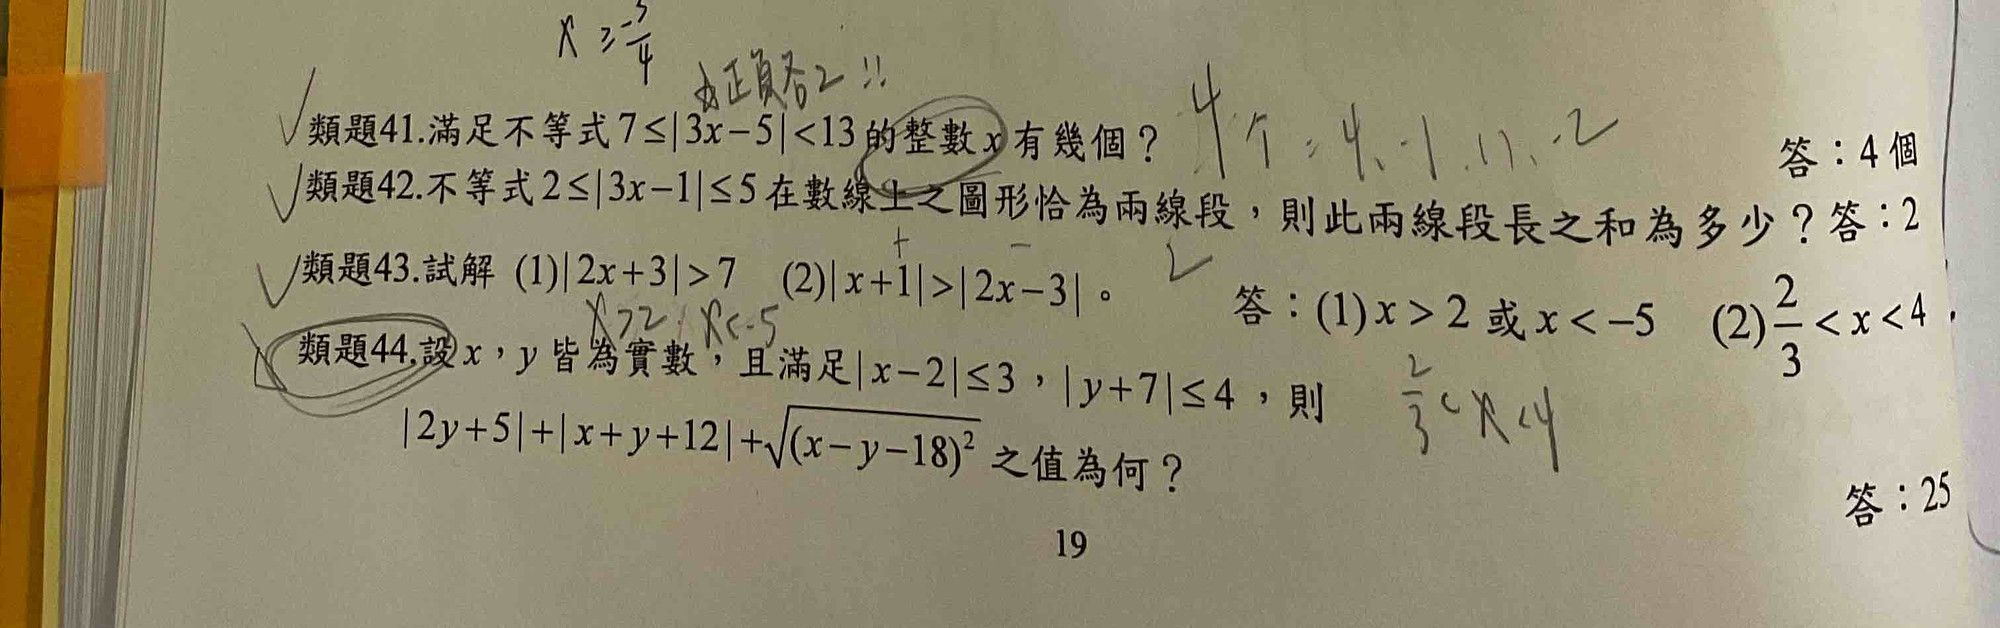 x ≥ -3/4
正負各2!!
類題41.滿足不等式 7≤|3x−5|<13的整數 x 有幾個？ 4个：4、-1 、-2 答：4個
類題42.不等式 2≤|3x−1|≤5 在數線上之圖形恰為兩線段，則此兩線段長之和為多少？答：2
+ − 2
類題43.試解 (1)|2x+3|>7 (2)|x+1|>|2x−3|。 答：(1) x > 2 或 x < −5 (2) 2/3 < x < 4
x>2 / x<-5
類題44.設 x，y 皆為實數，且滿足|x−2|≤3，|y+7|≤4，則 2/3 < x < 4
|2y+5|+|x+y+12|+√(x−y−18)² 之值為何？
答：25
19